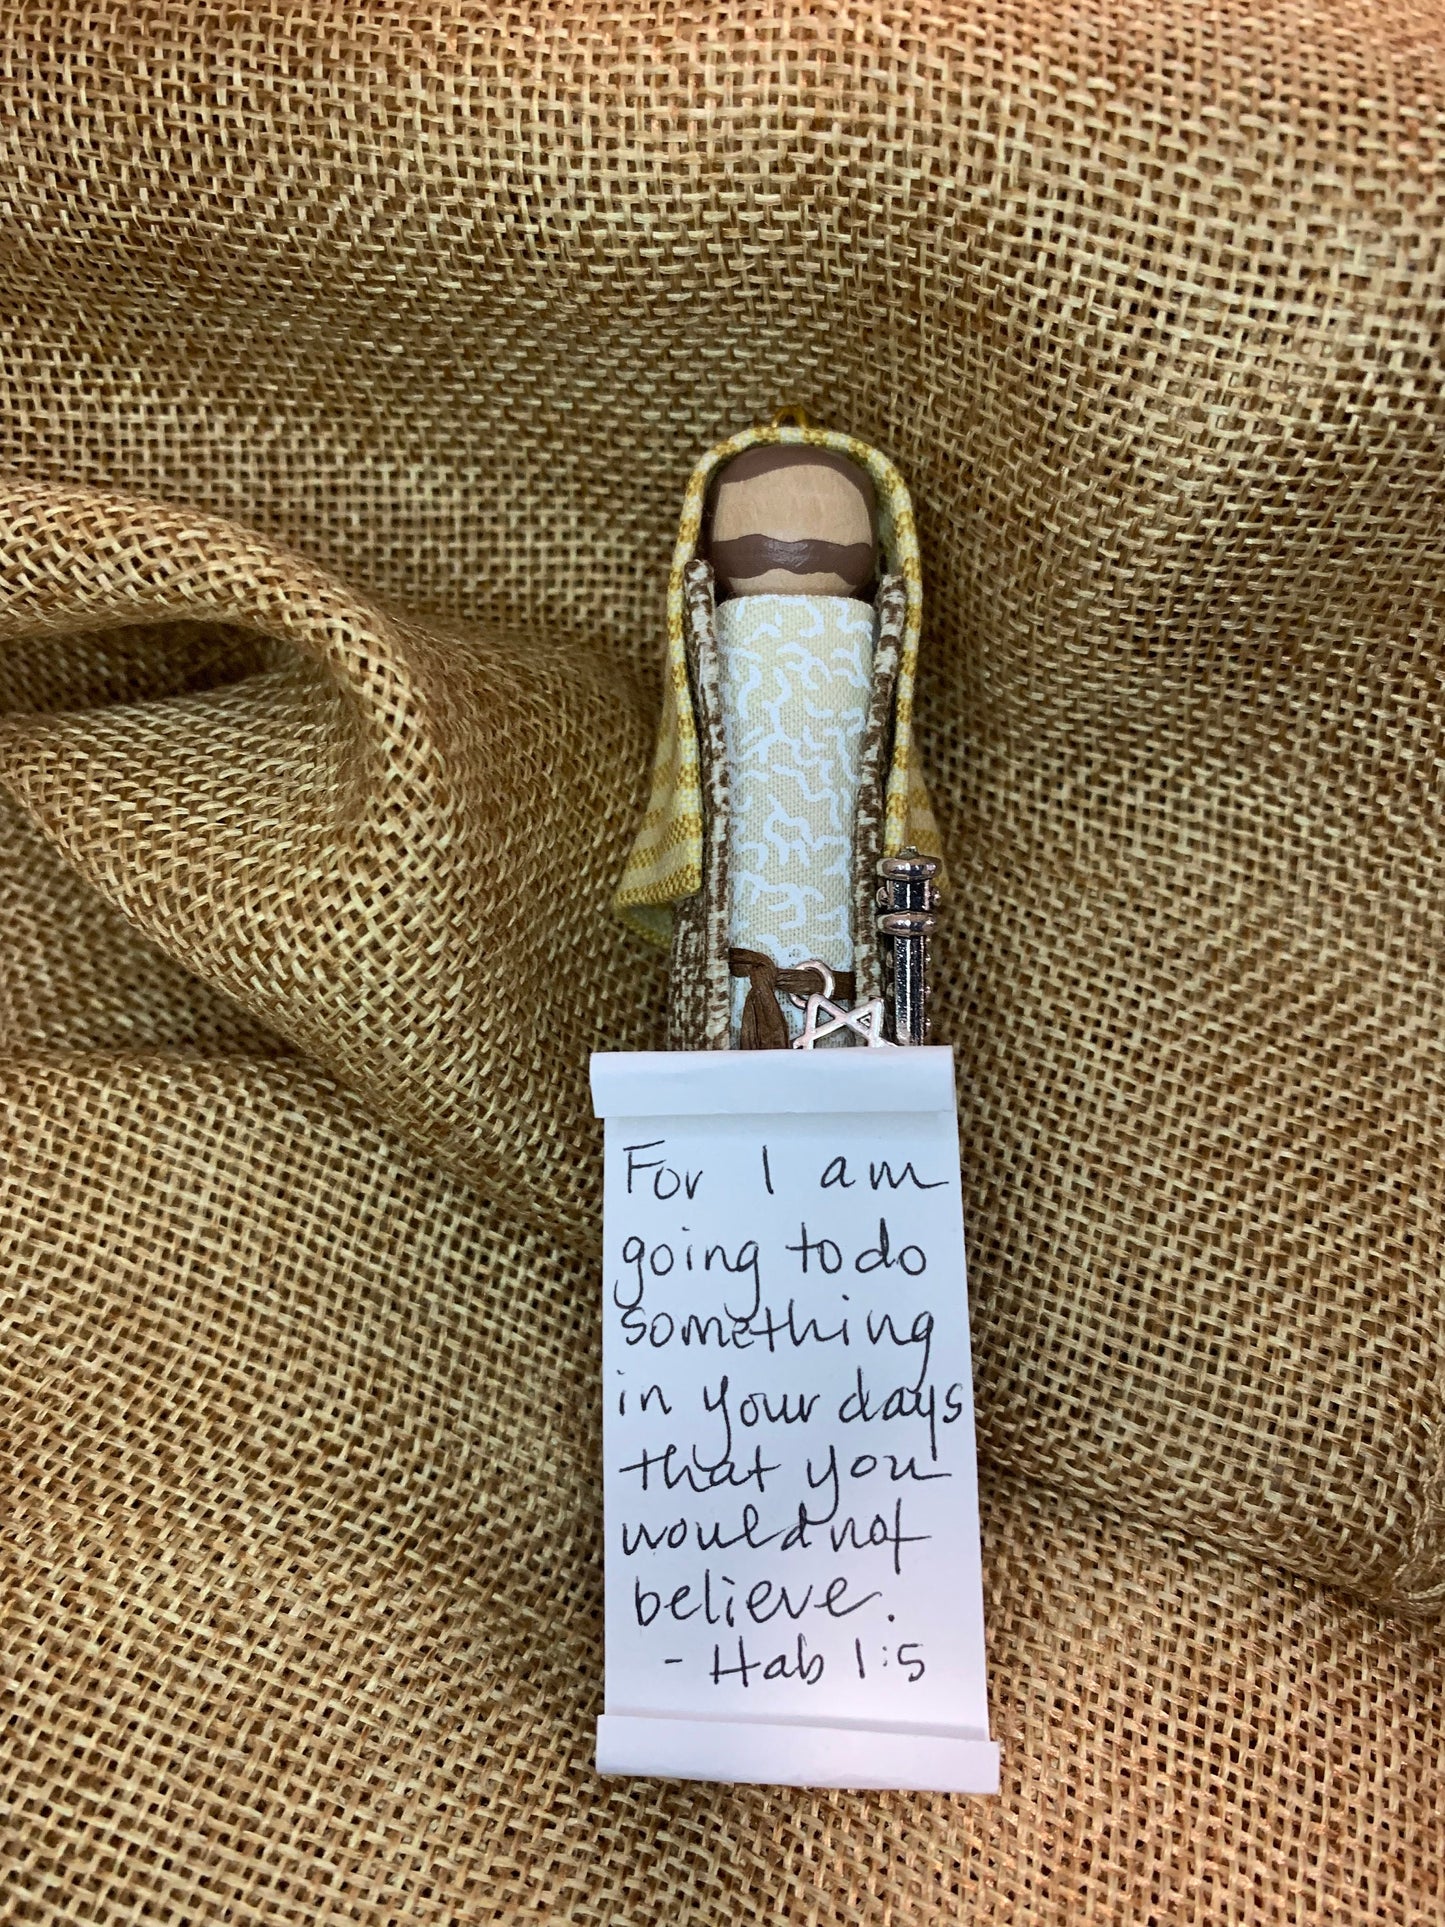 For I am
going to do
something
in your days
that you
would not
believe.
- Hab 1:5